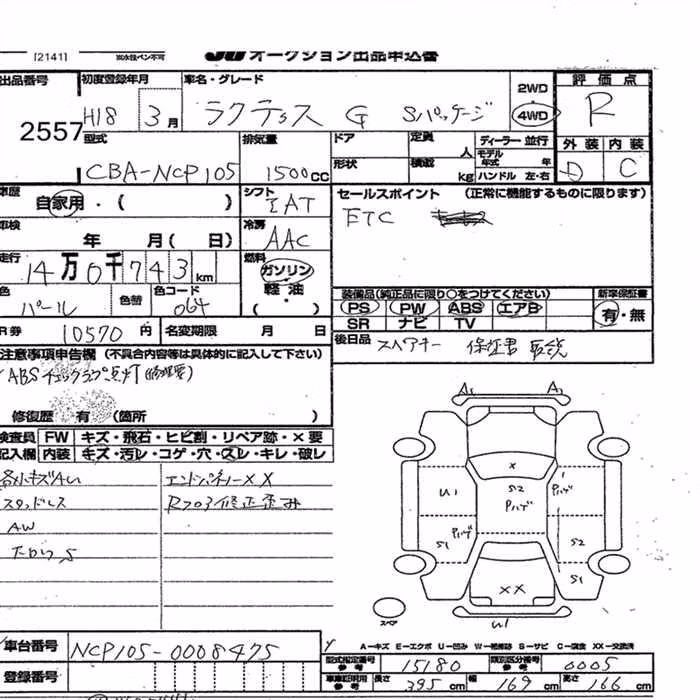 [2141] JU オークション出品申込書
出品番号 初度登録年月 車名・グレード 2WD 評価点
2557 H18 3月 ラクティス G Sパッケージ 4WD R
型式 排気量 ドア 定員 人 ディーラー 並行 外装 内装
CBA-NCP105 1500CC 形状 積載 kg モデル年式 年 ハンドル 左・右 D C
車歴 自家用・( ) シフト IAT セールスポイント (正常に機能するものに限ります)
車検 年 月( 日) 冷房 AAC ETC
走行 14万0千743km 燃料 ガソリン 軽・油 ・( )
色 パール 色替 色コード 064 装備品(純正品に限り○をつけてください) 新車保証書
PS PW ABS エアB 有・無
SR ナビ TV
R券 10570円 名変期限 月 日 後日品 スペアキー 保証書 取説
注意事項申告欄 (不具合内容等は具体的に記入して下さい)
ABSチェックランプ点灯(修理要)
修復歴 有 (箇所 )
検査員 FW キズ・飛石・ヒビ割・リペア跡・×要
記入欄 内装 キズ・汚レ・コゲ・穴・スレ・キレ・破レ
各小キズAU エンドパネルXX
スタッドレス Rフロア修正歪み
AW
下回りS
A1 A1
X
U1 S2 Pハゲ 1 Pハゲ
S1 Pハゲ S2
S1
XX
スペア U1
A=キズ E=エクボ U=凹み W=補修跡 S=サビ C=腐食 XX=交換済
車台番号 NCP105-0008475
型式指定番号 参考 15180 類別区分番号 参考 0005
登録番号 車庫証明用 参考 長さ 395cm 幅 169cm 高さ 166cm